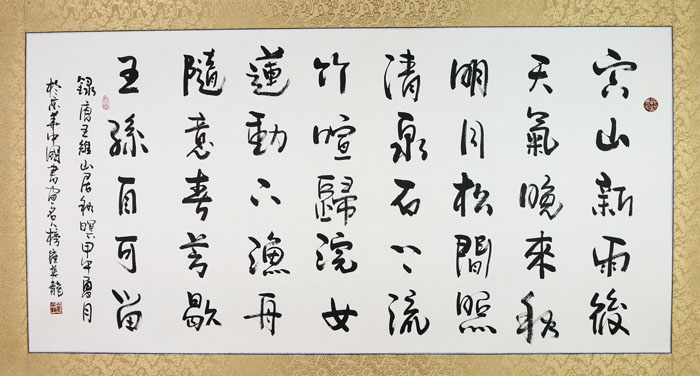 空山新雨後
天氣晚來秋
明月松間照
清泉石上流
竹喧歸浣女
蓮動下漁舟
隨意春芳歇
王孫自可留
錄唐王維山居秋暝甲午夏月
於京華中國書